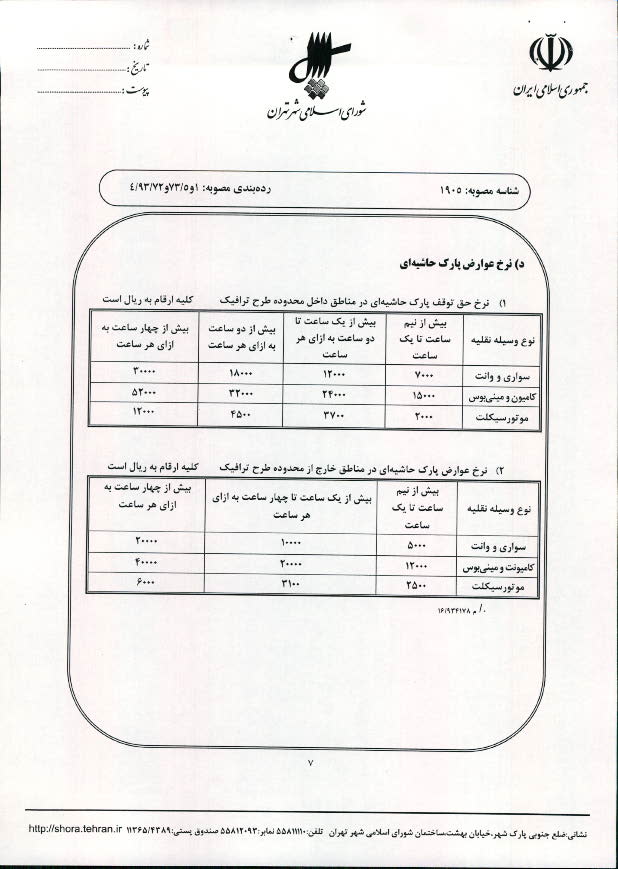 جمهوری اسلامی ایران
شورای اسلامی شهر تهران
شماره :
تاریخ :
پیوست :
شناسه مصوبه: ۱۹۰۵
رده‌بندی مصوبه: ۱و۷۳/۵و۴/۹۳/۷۲
د) نرخ عوارض پارک حاشیه‌ای
۱) نرخ حق توقف پارک حاشیه‌ای در مناطق داخل محدوده طرح ترافیک کلیه ارقام به ریال است
نوع وسیله نقلیه | بیش از نیم ساعت تا یک ساعت | بیش از یک ساعت تا دو ساعت به ازای هر ساعت | بیش از دو ساعت به ازای هر ساعت | بیش از چهار ساعت به ازای هر ساعت
سواری و وانت | ۷۰۰۰ | ۱۲۰۰۰ | ۱۸۰۰۰ | ۳۰۰۰۰
کامیون و مینی‌بوس | ۱۵۰۰۰ | ۲۴۰۰۰ | ۳۲۰۰۰ | ۵۲۰۰۰
موتورسیکلت | ۲۰۰۰ | ۳۷۰۰ | ۴۵۰۰ | ۱۲۰۰۰
۲) نرخ عوارض پارک حاشیه‌ای در مناطق خارج از محدوده طرح ترافیک کلیه ارقام به ریال است
نوع وسیله نقلیه | بیش از نیم ساعت تا یک ساعت | بیش از یک ساعت تا چهار ساعت به ازای هر ساعت | بیش از چهار ساعت به ازای هر ساعت
سواری و وانت | ۵۰۰۰ | ۱۰۰۰۰ | ۲۰۰۰۰
کامیونت و مینی‌بوس | ۱۲۰۰۰ | ۲۰۰۰۰ | ۴۰۰۰۰
موتورسیکلت | ۲۵۰۰ | ۳۱۰۰ | ۶۰۰۰
./ م ۱۶/۹۳۴۱۷۸
۷
نشانی:ضلع جنوبی پارک شهر،خیابان بهشت،ساختمان شورای اسلامی شهر تهران تلفن:۵۵۸۱۱۱۱۰ نمابر:۵۵۸۱۲۰۹۳ صندوق پستی:۱۱۳۶۵/۴۳۸۹ http://shora.tehran.ir